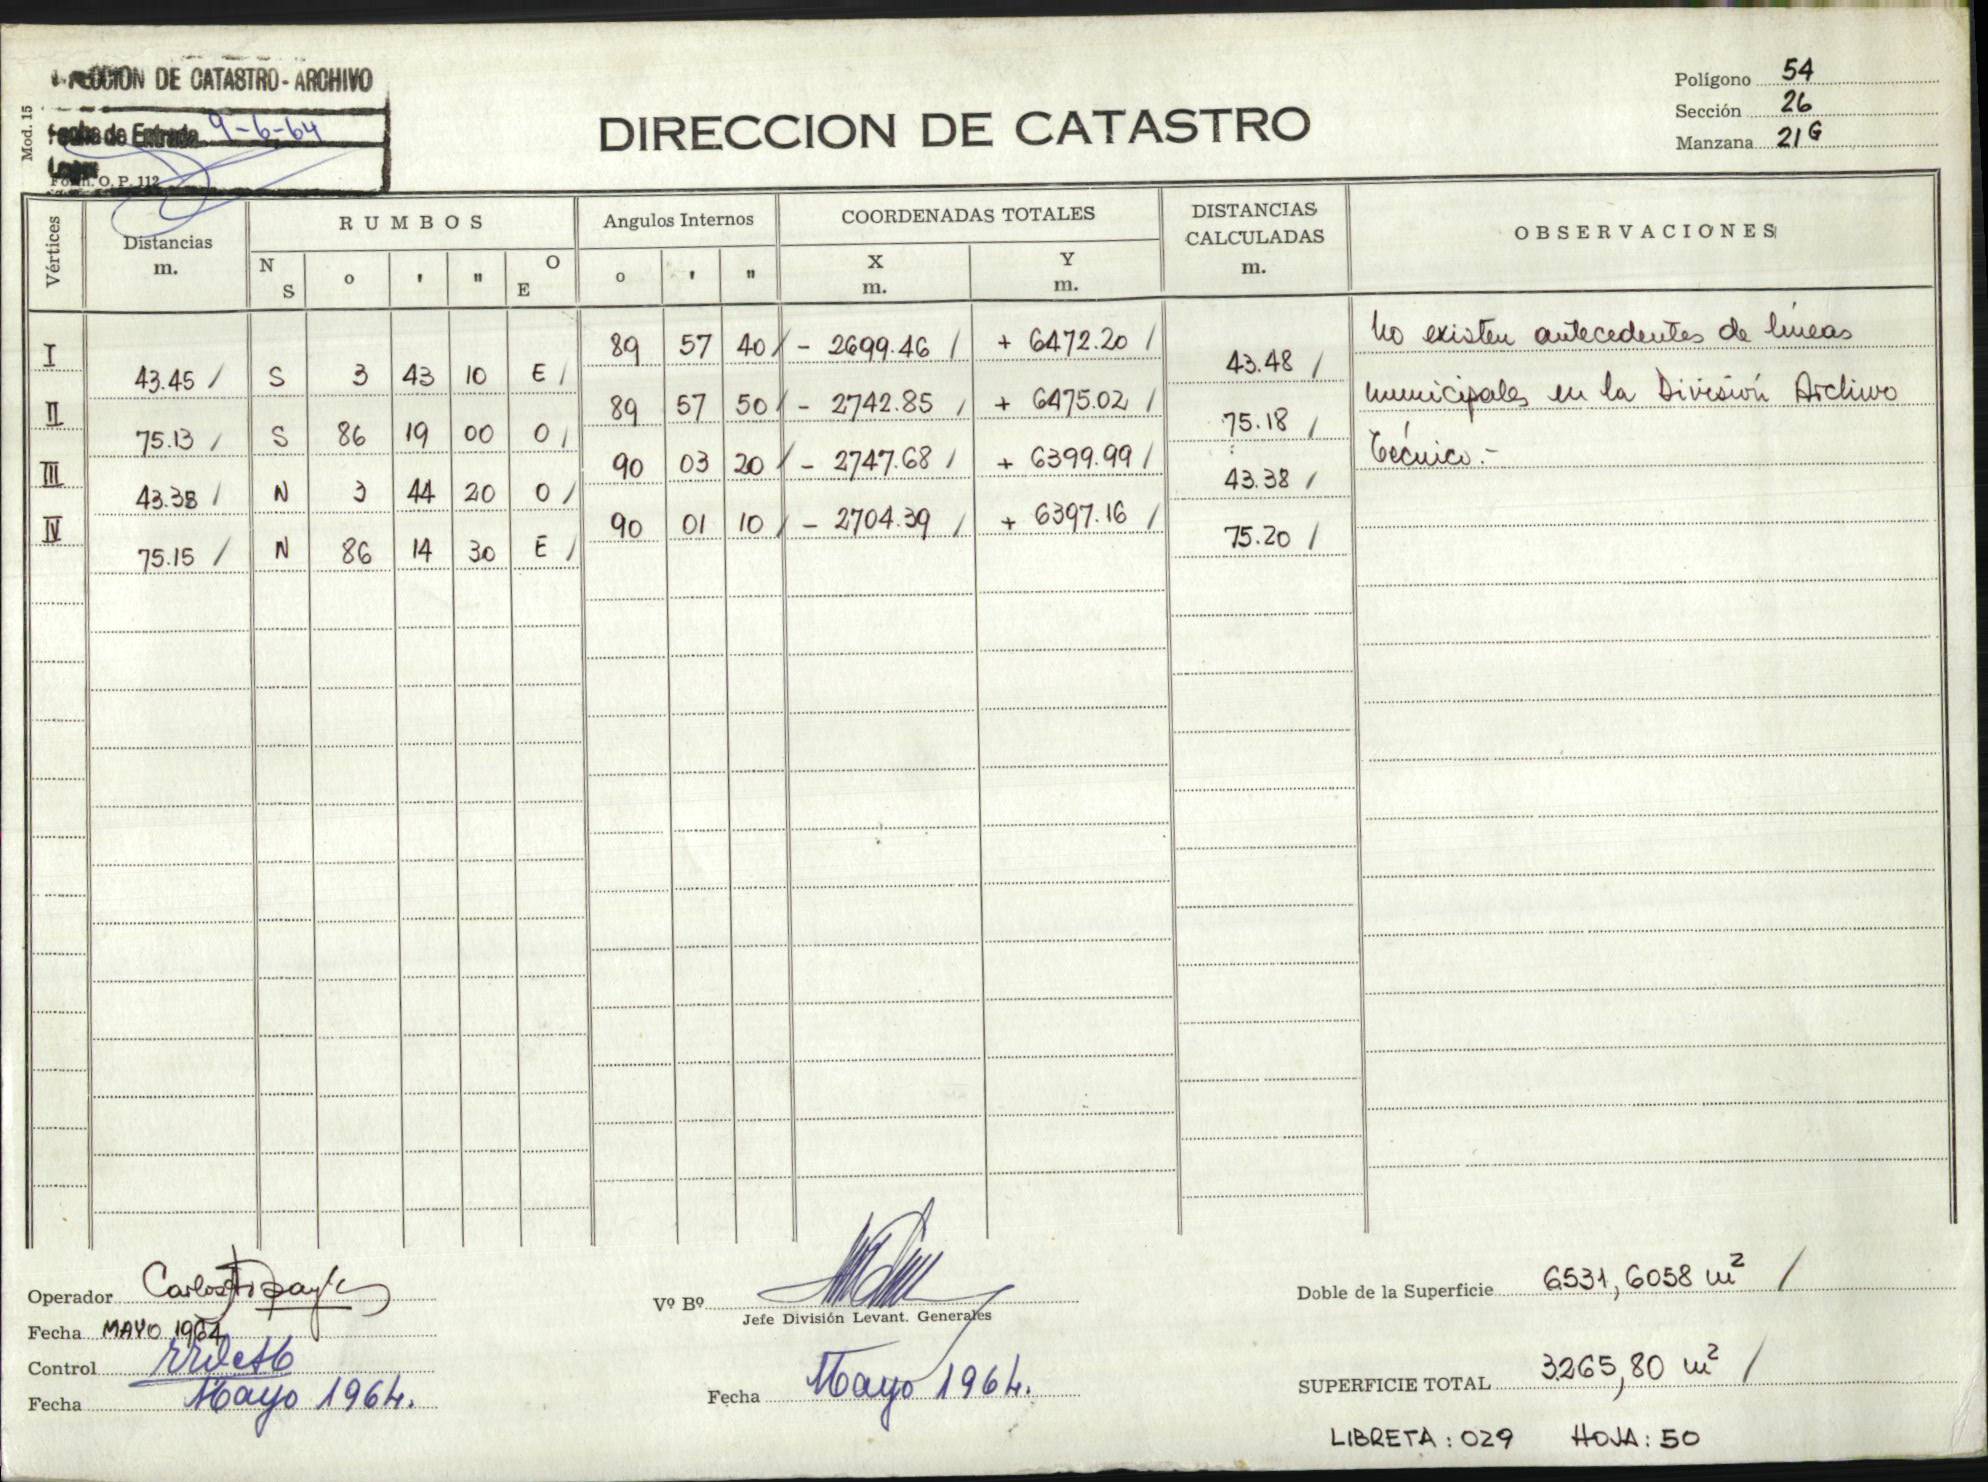 DIRECCION DE CATASTRO - ARCHIVO
Fecha de Entrada 9-6-64
Form. O. P. 112
Mod. 15
DIRECCION DE CATASTRO
Polígono 54
Sección 26
Manzana 21G
Vértices
Distancias m.
RUMBOS
N S o ' " O E
Angulos Internos
o ' "
COORDENADAS TOTALES
X m. Y m.
DISTANCIAS CALCULADAS m.
OBSERVACIONES
I 89 57 40 / - 2699.46 / + 6472.20 /
43.45 / S 3 43 10 E / 43.48 /
II 89 57 50 / - 2742.85 / + 6475.02 /
75.13 / S 86 19 00 O / 75.18 /
III 90 03 20 / - 2747.68 / + 6399.99 /
43.38 / N 3 44 20 O / 43.38 /
IV 90 01 10 / - 2704.39 / + 6397.16 /
75.15 / N 86 14 30 E / 75.20 /
No existen antecedentes de líneas
municipales en la División Archivo
Técnico.-
Operador Carlos
Fecha MAYO 1964
Control
Fecha Mayo 1964.
Vº Bº
Jefe División Levant. Generales
Fecha Mayo 1964.
Doble de la Superficie 6531,6058 m² /
SUPERFICIE TOTAL 3265,80 m² /
LIBRETA : 029 HOJA : 50